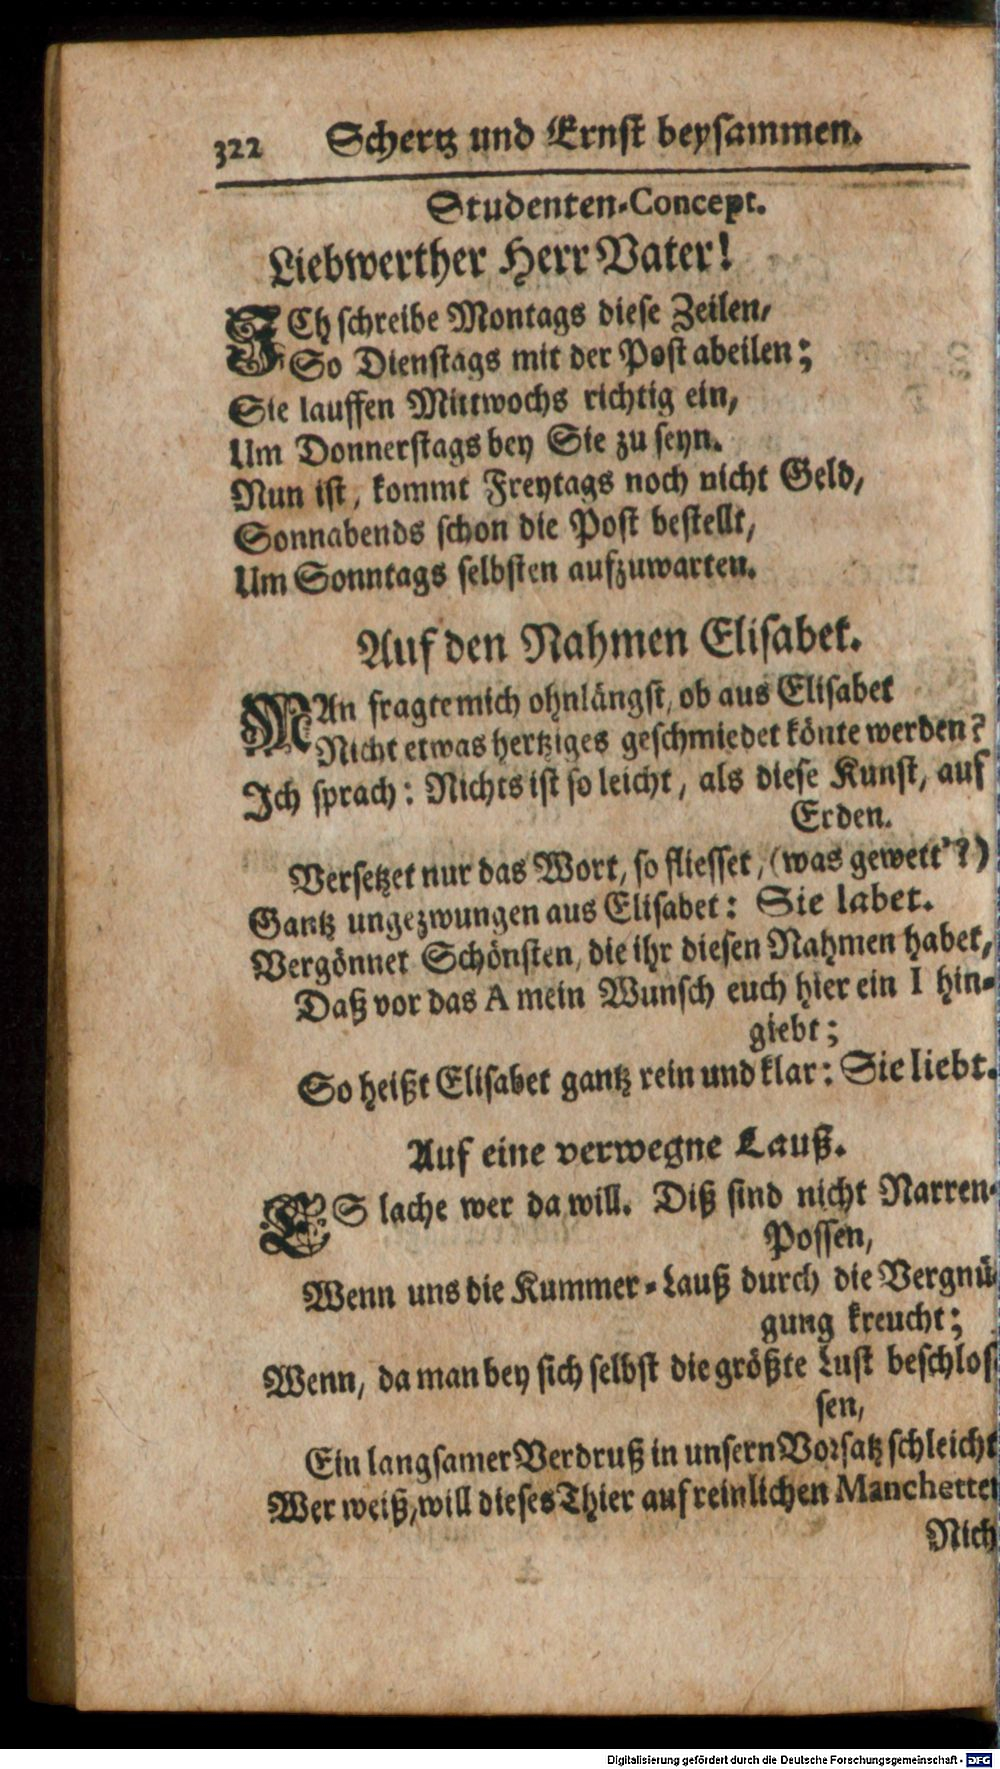 322 Schertz und Ernst beysammen.
Studenten-Concept.
Liebwerther Herr Vater!
ICh schreibe Montags diese Zeilen/
So Dienstags mit der Post abeilen;
Sie lauffen Mittwochs richtig ein,
Um Donnerstags bey Sie zu seyn.
Nun ist, kommt Freytags noch nicht Geld,
Sonnabends schon die Post bestellt,
Um Sonntags selbsten aufzuwarten.
Auf den Nahmen Elisabet.
MAn fragte mich ohnlängst, ob aus Elisabet
Nicht etwas hertziges geschmiedet könte werden?
Ich sprach: Nichts ist so leicht, als diese Kunst, auf
Erden.
Versetzet nur das Wort, so fliesset, (was gewett'?)
Gantz ungezwungen aus Elisabet: Sie labet.
Vergönnet Schönsten, die ihr diesen Nahmen habet,
Daß vor das A mein Wunsch euch hier ein I hin-
giebt;
So heißt Elisabet gantz rein und klar: Sie liebt.
Auf eine verwegne Lauß.
ES lache wer da will. Diß sind nicht Narren-
Possen,
Wenn uns die Kummer-Lauß durch die Vergnü-
gung kreucht;
Wenn, da man bey sich selbst die größte Lust beschlos
sen,
Ein langsamer Verdruß in unsern Vorsatz schleicht
Wer weiß, will dieses Thier auf reinlichen Manchetten
Nich
Digitalisierung gefördert durch die Deutsche Forschungsgemeinschaft - DFG